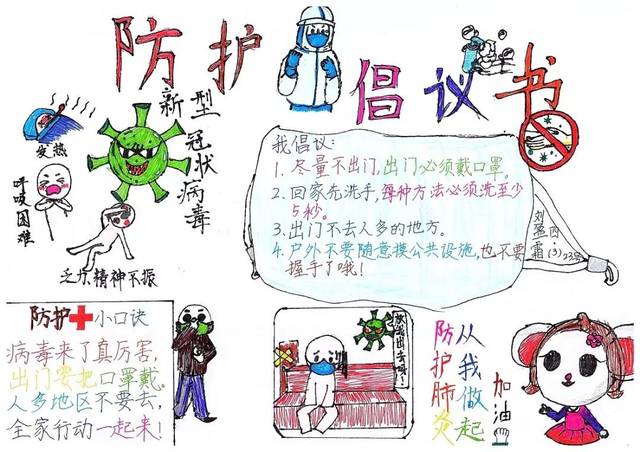 防护倡议书
新型
冠状病毒
发热
呼吸困难
乏力精神不振
我倡议:
1. 尽量不出门,出门必须戴口罩。
2. 回家先洗手,每种方法必须洗至少
5秒。
3. 出门不去人多的地方。
4. 户外不要随意摸公共设施,也不要
握手了哦!
四.(3)23号
防护 小口诀
病毒来了真厉害,
出门要把口罩戴,
人多地区不要去,
全家行动一起来!
放我出去啊!
从我做起
防护肺炎
加油